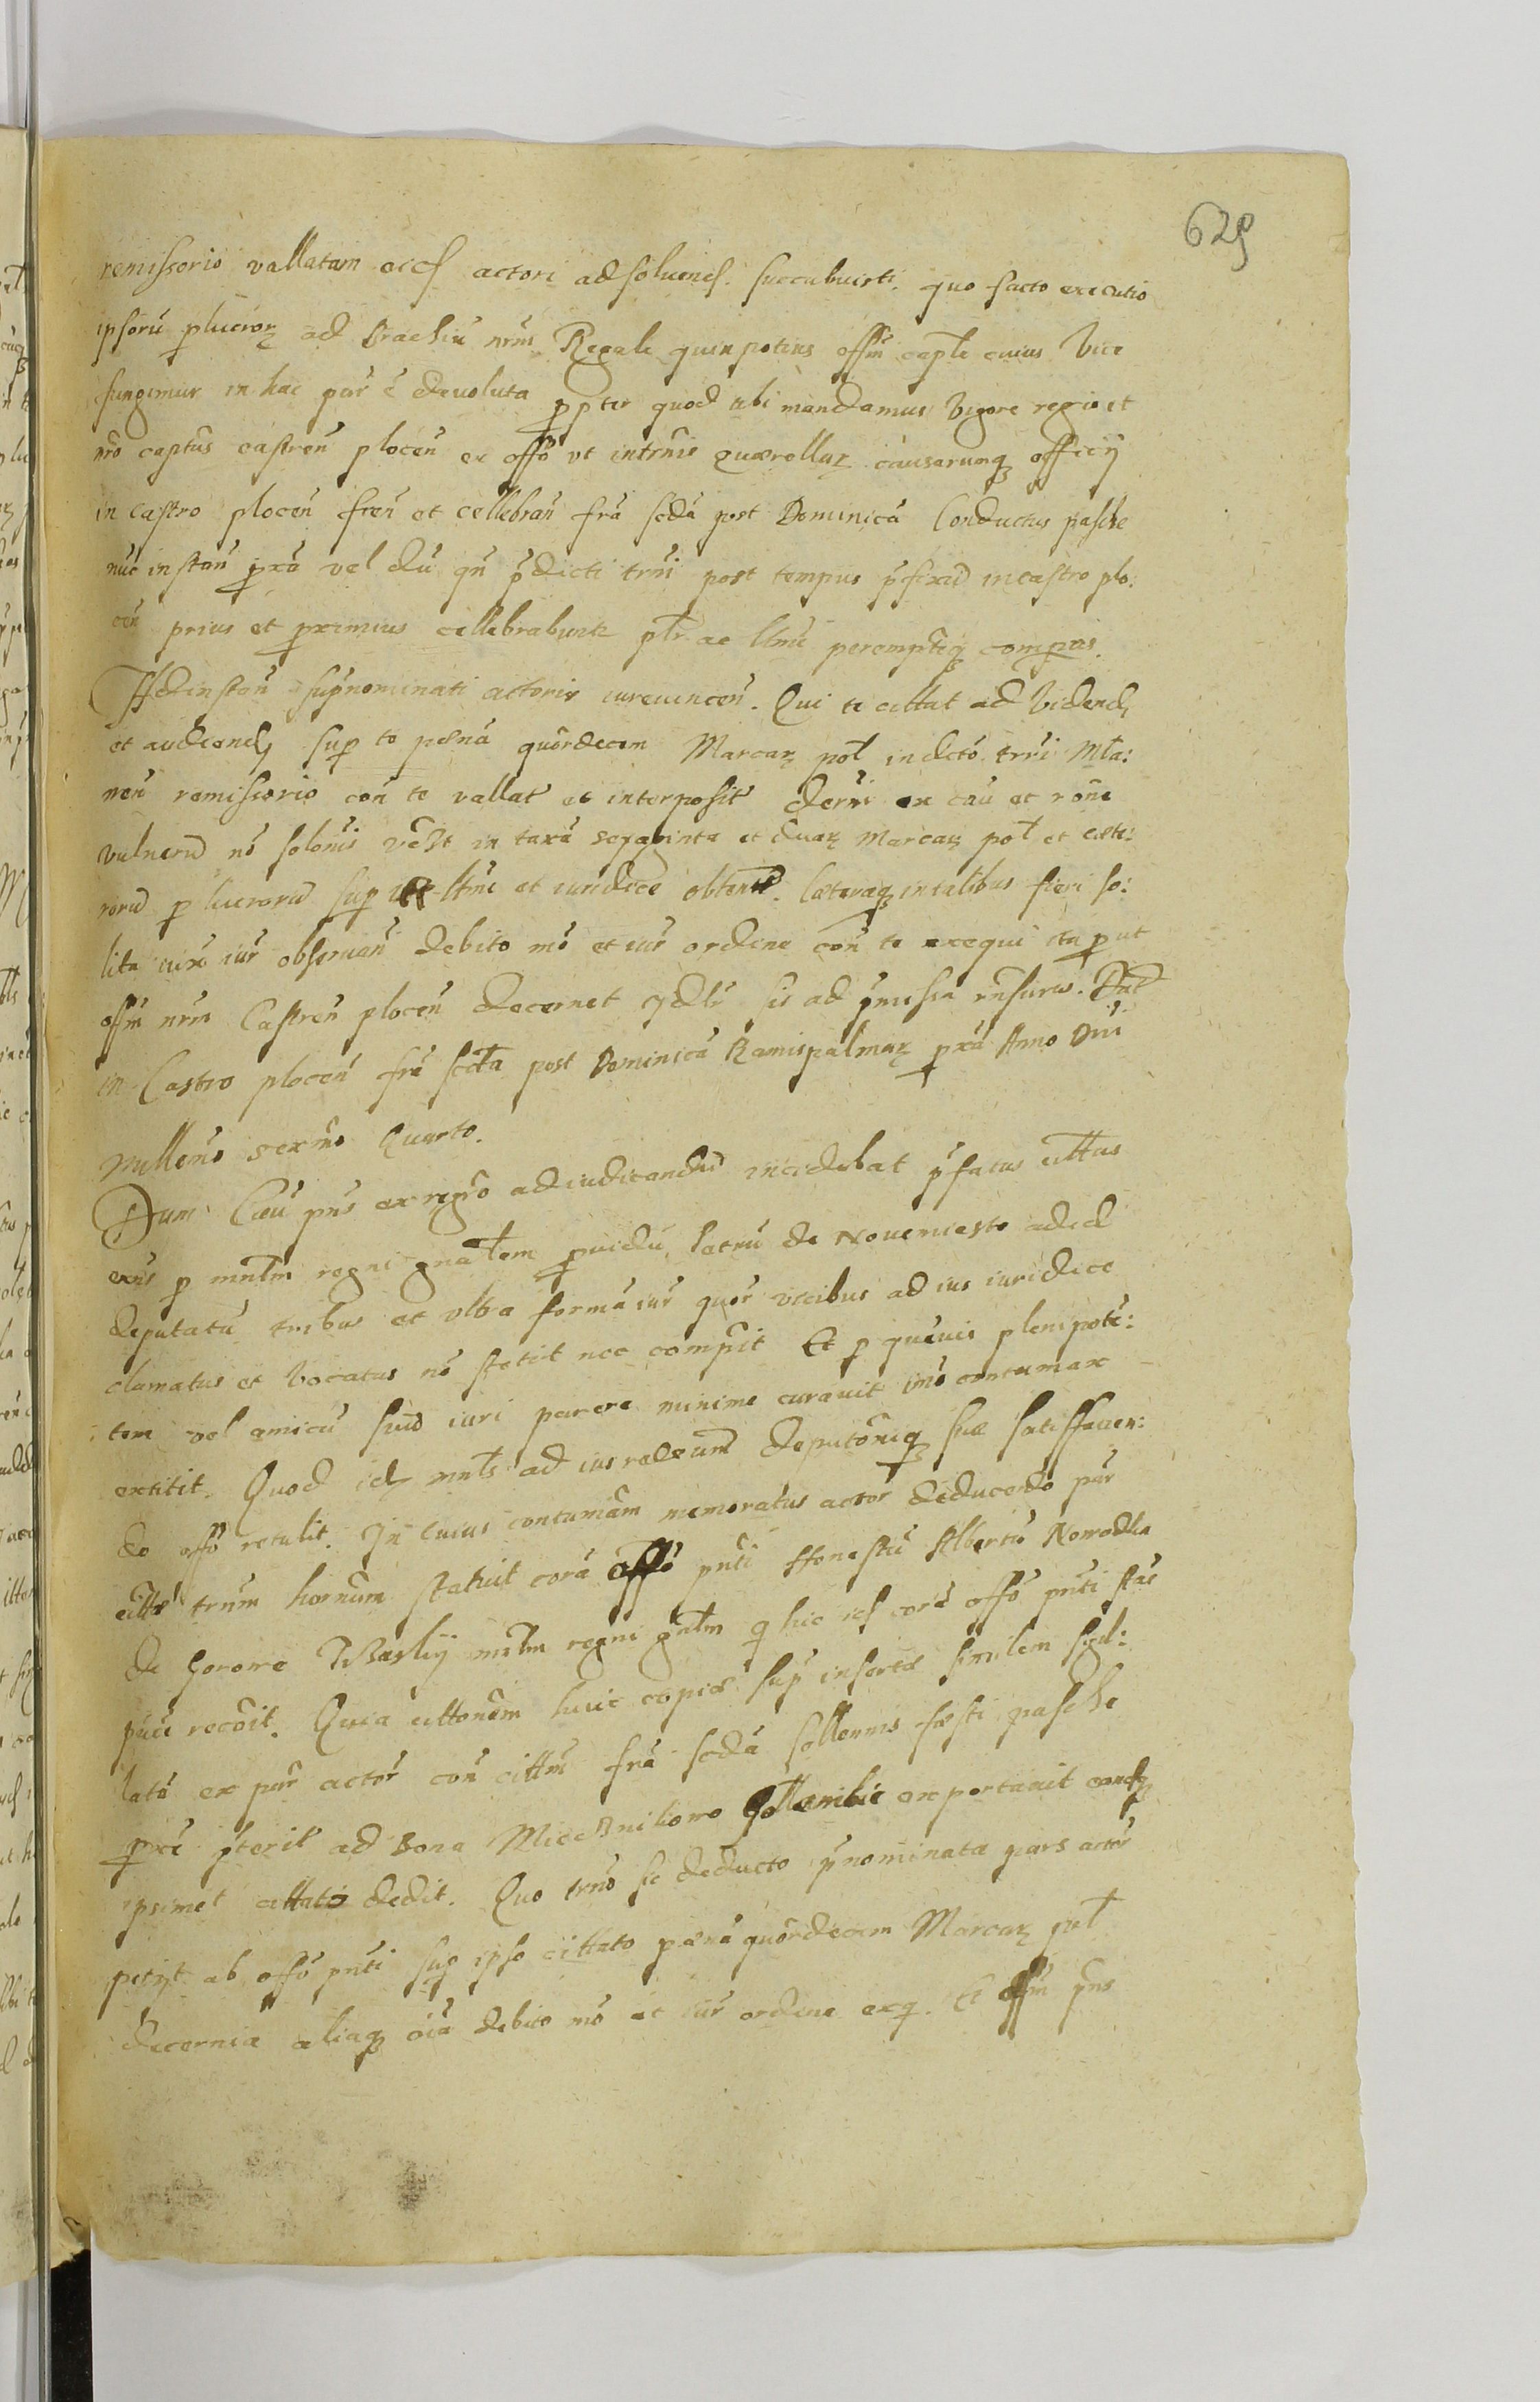 629
remissorio vallatam eid actori ad soluend. succubuisti. quo facto executio
ipsorũ p lucror̃ ad Brachiũ nrm̃ Regale quin potius offm̃ capt̃le cuius Vice
fungimur in hac par̃ ẽ deuoluta p̱pter quod tibi mandamus Vigore regio et
nr̃o captũs castreñ ploceñ ex offõ vt in tr̃nis quærellar̃ causarumq officij
in Castro ploceñ fieñ et cellebrañ frã scdã post Dominicã Conductus pasche
nũc instañ p̱xã vel dũ qñ p̃dicti tr̃ni post tempus p̃fixũ in castro plo:
ceñ prius et p̱ximius cellebrabuntr̃ pl̃r ac ltm̃e peremptieq compas.
Ad instañ sup̃nominati actoris iureuinceñ. Qui te cittat ad Videnđ
et audienđ sup te pænã quõrdecem Marcar̃ pol̃ in dictõ tr̃ni Mła:
neñ remissorio coñ te vallat̃ et interposit̃ decerni ex caũ et rõne
vulnerũ nõ soloniś in taxã septuaginta et duar̃ Marcar̃ pol̃ et cæte:
rorũ p lucrorũ sup te ltm̃e et iuridice obtent̃. Cæteraq in talibus fieri so:
lita iuxã iur̃ obseruañ debito mõ et iur̃ ordine coñ te exequi ita p̱ut
offm̃ nrm̃ Castreñ ploceñ decernet sis ad p̃missa rñsurus. Dat̃
in Castro ploceñ frã scd̃a post Dominicã Ramispalmar̃ p̱xã Anno Dnĩ
Millem̃o sexm̃o Quarto.
Dum Caũ pñs ex regr̃o ad iudicandũ incidebat p̃fatus cittatus
p mnl̃m regni gnałem p̱uidũ Petrũ de Nouemiesto ad id
deputatũ tribus et vltra formã iur̃ quõr vicibus ad ius iuridice
clamatus et Vocatus nõ stetit nec comp̃uit Et p quẽuis plenipotẽ:
tem vel amicũ suũ iuri parere minime curauit imõ contumax
extitit. Quod idem mnl̃s ad ius deputõniq suæ satisfacien:
do offõ retulit. In Cuius contumãm memoratus actor deducendo par̃
citte tr̃num hornum statuit corã offõ pñti Honestũ Albertũ
de mnl̃m regni gnl̃m q hic corã offõ pñti stãs
pũce recõit. Quia cittõnem huic copiæ sup̃ insertæ similem sigil:
latã ex par̃ actor̃ coñ citt̃m frã scdã sollennis fæsti pasche
p̱xe p̃terit̃ ad Bona exportauit eandq
ipsimet cittato dedit. Quo tr̃no sic deducto p̃nominata pars actor̃
petijt ab offõ pñti sup ipso cittato pænã quõrdecem Marcar̃ pol̃
decerni aliaq oĩa debito mõ et iur̃ ordine exq. Et offm̃ pñs